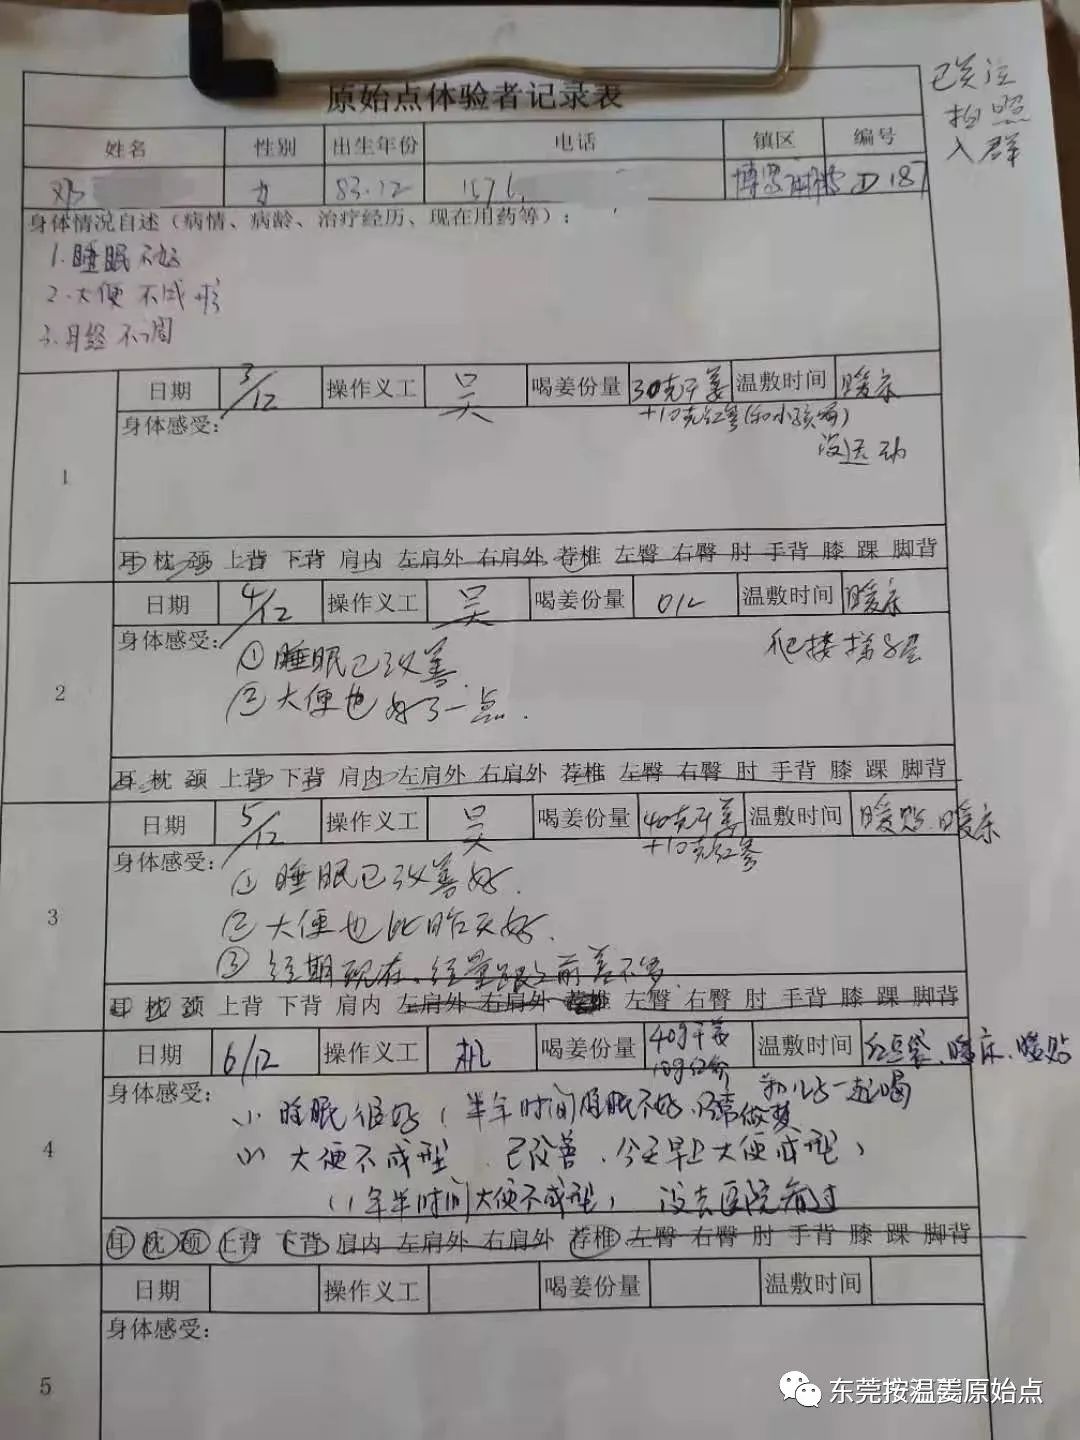 原始点体验者记录表
已关注
拍照
入群
姓名 性别 出生年份 电话 镇区 编号
邓 女 83.12 1576 博罗 D187
身体情况自述（病情、病龄、治疗经历、现在用药等）：
1.睡眠不好
2.大便不成形
3.月经不调
1
日期 3/12 操作义工 吴 喝姜份量 30克干姜 温敷时间 暖床
+10克红参(和小孩喝)
身体感受：
没运动
耳 枕 颈 上背 下背 肩内 左肩外 右肩外 荐椎 左臀 右臀 肘 手背 膝 踝 脚背
2
日期 4/12 操作义工 吴 喝姜份量 温敷时间 暖床
身体感受：
①睡眠已改善
②大便也好了一点.
耳 枕 颈 上背 下背 肩内 左肩外 右肩外 荐椎 左臀 右臀 肘 手背 膝 踝 脚背
3
日期 5/12 操作义工 吴 喝姜份量 40克干姜 温敷时间 暖贴、暖床
+10克红参
身体感受：
①睡眠已改善好.
②大便也比昨天好.
③经期现在.经量跟之前差不多
耳 枕 颈 上背 下背 肩内 左肩外 右肩外 荐椎 左臀 右臀 肘 手背 膝 踝 脚背
4
日期 6/12 操作义工 机 喝姜份量 40g干姜 温敷时间 红豆袋、暖床、暖贴
10g红参
身体感受：
和儿子一起喝
(1)睡眠很好(半年时间睡眠不好,经常做梦
(2)大便不成型、已改善、今天早上大便成型)
(1年半时间大便不成型) 没去医院看过
耳 枕 颈 上背 下背 肩内 左肩外 右肩外 荐椎 左臀 右臀 肘 手背 膝 踝 脚背
5
日期 操作义工 喝姜份量 温敷时间
身体感受：
东莞按温姜原始点